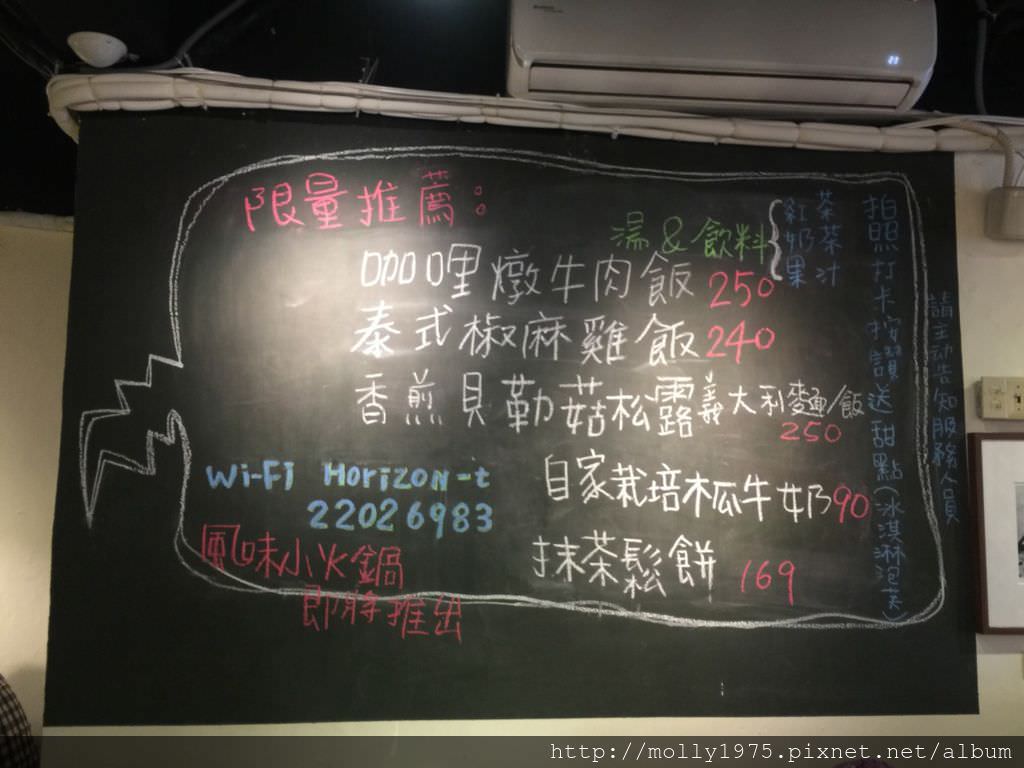 限量推薦：
湯&飲料
紅茶
奶茶
果汁
咖哩燉牛肉飯 250
泰式椒麻雞飯 240
香煎貝勒菇松露義大利麵/飯
250
自家栽培木瓜牛奶 90
抹茶鬆餅 169
Wi-Fi Horizon-t
22026983
風味小火鍋
即將推出
拍照打卡按讚送甜點(冰淇淋泡芙)
請主动告知服務人員
http://molly1975.pixnet.net/album